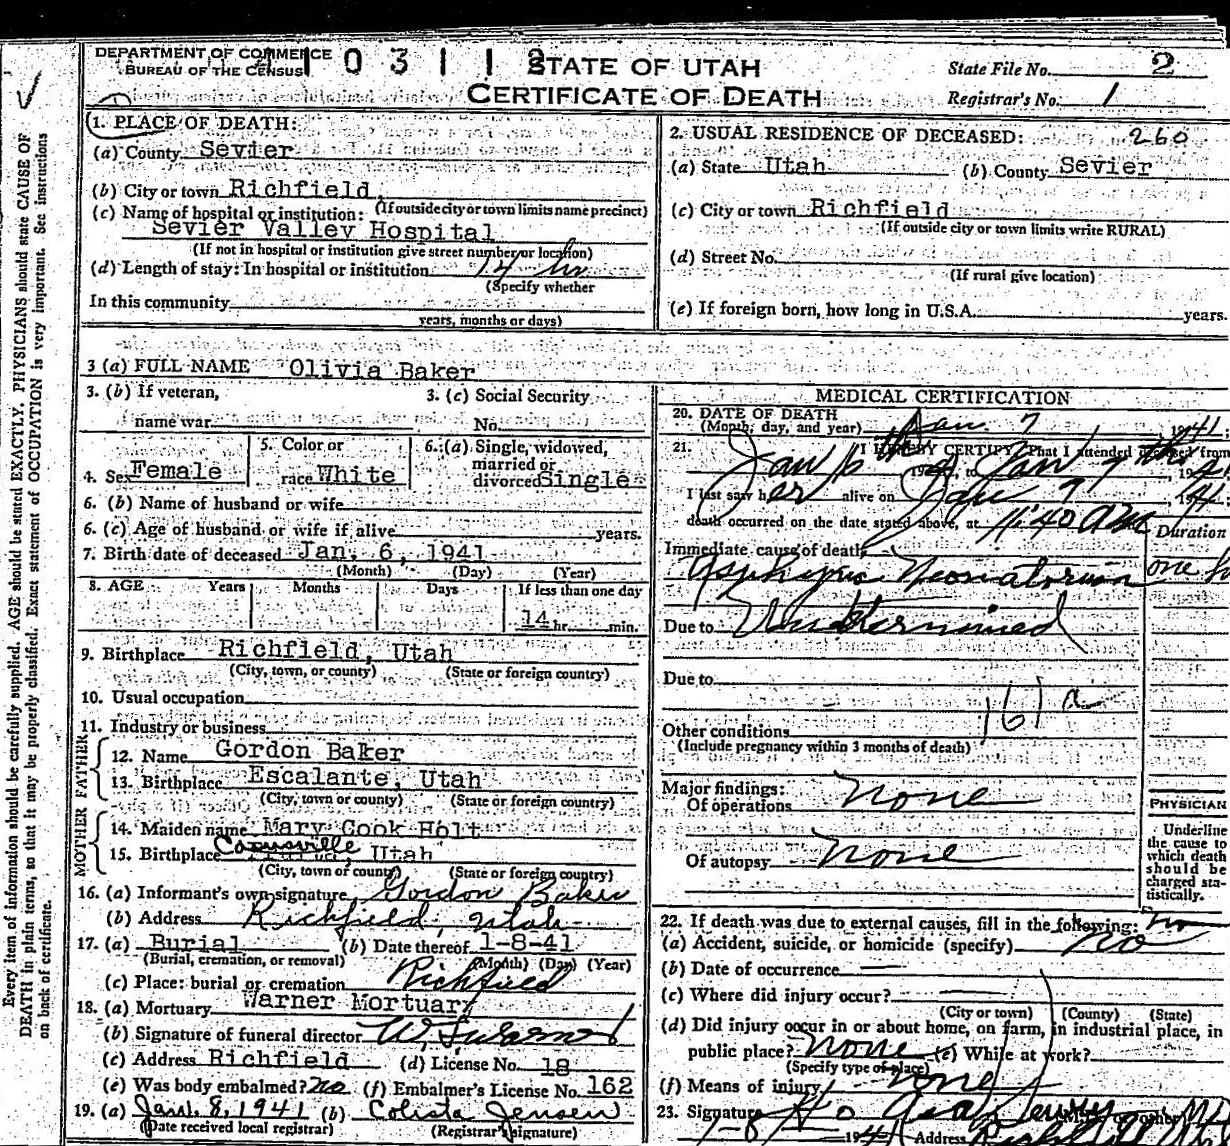 DEPARTMENT OF COMMERCE
BUREAU OF THE CENSUS
STATE OF UTAH
CERTIFICATE OF DEATH
State File No. 2
Registrar's No. 1
1. PLACE OF DEATH:
(a) County Sevier
(b) City or town Richfield
(If outside city or town limits name precinct)
(c) Name of hospital or institution:
Sevier Valley Hospital
(If not in hospital or institution give street number or location)
(d) Length of stay: In hospital or institution 14 hr
(Specify whether
In this community
years, months or days)
2. USUAL RESIDENCE OF DECEASED: 260
(a) State Utah (b) County Sevier
(c) City or town Richfield
(If outside city or town limits write RURAL)
(d) Street No.
(If rural give location)
(e) If foreign born, how long in U.S.A. years.
3 (a) FULL NAME Olivia Baker
3. (b) If veteran, 3. (c) Social Security
name war No.
4. Sex Female
5. Color or
race White
6. (a) Single, widowed,
married or
divorced Single
6. (b) Name of husband or wife
6. (c) Age of husband or wife if alive years.
7. Birth date of deceased Jan. 6, 1941
(Month) (Day) (Year)
8. AGE Years Months Days If less than one day
14 hr. min.
9. Birthplace Richfield, Utah
(City, town, or county) (State or foreign country)
10. Usual occupation
11. Industry or business
FATHER
12. Name Gordon Baker
13. Birthplace Escalante, Utah
(City, town or county) (State or foreign country)
MOTHER
14. Maiden name Mary Cook Holt
15. Birthplace Utah
(City, town or county) (State or foreign country)
16. (a) Informant's own signature Gordon Baker
(b) Address Richfield, Utah
17. (a) Burial (b) Date thereof 1-8-41
(Burial, cremation, or removal) (Month) (Day) (Year)
(c) Place: burial or cremation Richfield
18. (a) Mortuary Warner Mortuary
(b) Signature of funeral director
(c) Address Richfield (d) License No. 18
(e) Was body embalmed? no (f) Embalmer's License No. 162
19. (a) Jan. 8, 1941 (b) Colista Jensen
(Date received local registrar) (Registrar's signature)
MEDICAL CERTIFICATION
20. DATE OF DEATH
(Month, day, and year) Jan 7 1941
21. I HEREBY CERTIFY, That I attended deceased from
Jan 6 th 19 to Jan 7 th 19
I last saw her alive on Jan 7 1941
death occurred on the date stated above, at 11:40 AM
Duration
Immediate cause of death
Asphyxia Neonatorum one
Due to Undetermined
Due to
161 a
Other conditions
(Include pregnancy within 3 months of death)
Major findings:
Of operations none
Of autopsy none
PHYSICIAN
Underline
the cause to
which death
should be
charged sta-
tistically.
22. If death was due to external causes, fill in the following: no
(a) Accident, suicide, or homicide (specify) no
(b) Date of occurrence
(c) Where did injury occur?
(City or town) (County) (State)
(d) Did injury occur in or about home, on farm, in industrial place, in
public place? none (e) While at work?
(Specify type of place)
(f) Means of injury none
23. Signature
1-8 1941 Address
Every item of information should be carefully supplied. AGE should be stated EXACTLY. PHYSICIANS should state CAUSE OF
DEATH in plain terms, so that it may be properly classified. Exact statement of OCCUPATION is very important. See instructions
on back of certificate.